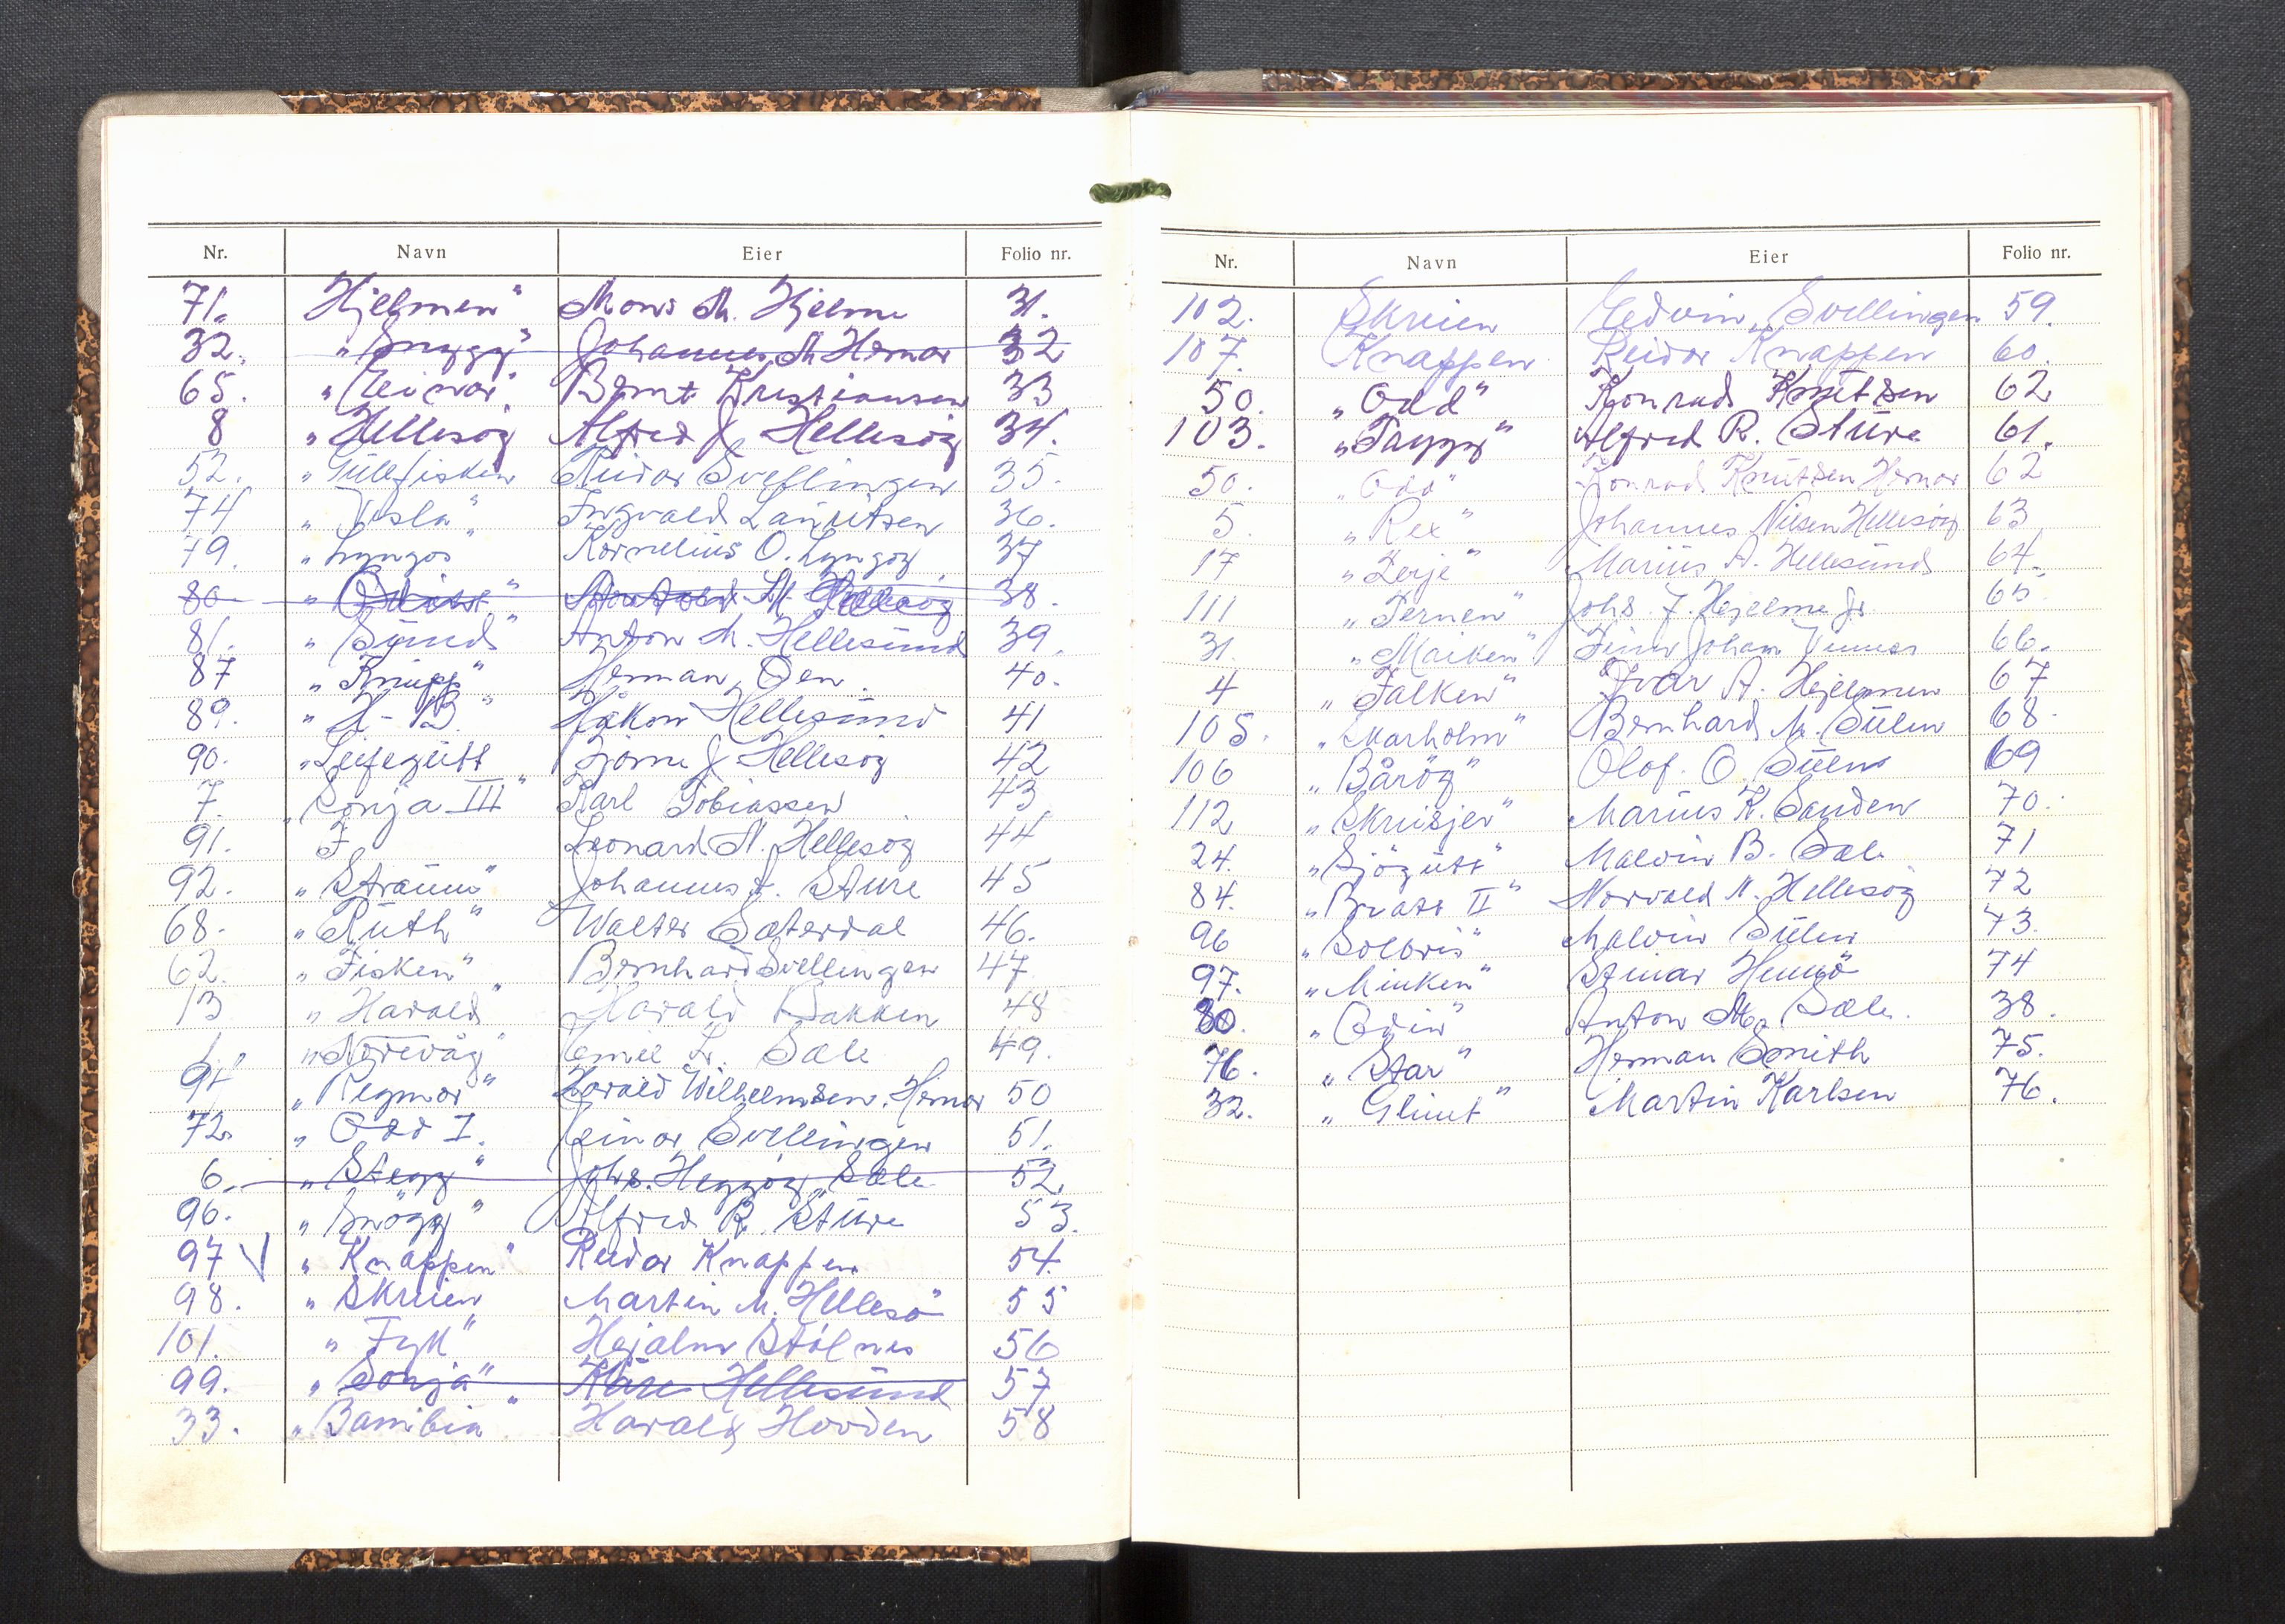 Nr. Navn Eier Folio nr.
71. Hjelmen" Mons M. Hjelme 31.
32. „Snygg" Johannes M Hernar 32
65. „Einar" Bernt Kristiansen 33
8 „Hellesöy Alfred J. Hellesöy 34.
52. „Gullfisken Reidar Svellingen 35.
74 „Vesla" Ingvald Lauritsen 36.
79. „Lyngos" Kornelius O. Lyngöy 37
80 „ " M. Hellesöy 38.
81. „Sund" Anton M. Hellesund 39.
87 „Knupp" Herman Öen 40.
89. „H-B" Håkon Hellesund 41
90. „Leifegutt Bjorne J Hellesöy 42
7. „Sonja III" Karl Tobiassen 43
91. F Leonard N. Hellesöy 44
92. „Straum" Johannes J. Sture 45
68. „Ruth" Walter Sæterdal 46.
62. „Fisken" Bernhard Svellingen 47
13 „Harald" Harald Bakken 48
1. „Norevåg" Emil L. Sæle 49.
94 „Regmor" Harald Wilhelmsen. Hernar 50
72. „Odd I. Einar Svellingen 51.
6. „Stegg" Johs. Heggöy Sæle 52
96. „Snögg" Alfred R. Sture 53.
97 V „Knappen" Reidar Knappen 54.
98. „Skreien Martin M. Hellesö 55
101. „Fyk" Hejalmr Stölnes 56
99. „Sonja" Kåre Hellesund 57
33. „Bambin" Harald Hovden 58
Nr. Navn Eier Folio nr.
102. Skreien Edvin Svellingen 59.
107. Knappen Reidar Knappen 60.
50. „Odd" Konrad Knutsen 62
103. „Taggg" Alfred R. Sture 61.
50. „Odd" Konrad Knutsen Hernar 62
5. „Rex" Johannes Nilsen Hellesöy 63
17 „Terje" Marius A. Hellesund 64.
111 „Ternen" Johs. J. Hejelme Jr. 65
31. „Maiken" Finn Johan 66.
4 „Falken" Ivar A. Hejelmen 67
105. „Skarholm" Bernhard M. Sulen 68.
106 „Båröy" Olof. O. Sulen 69
112 „Skrüsjer" Marius K. Sanden 70.
24. „Sjögutt" Malvin B. Sæle 71
84. „Bratt II" Norvald N. Hellesöy 72
96 „Solbris" Malvin Sulen 73.
97. „Minken" Steinar Hennö 74
80. „Odin" Anton M. Sæle. 38.
76. „Star" Herman Smith 75.
32. „Glimt" Martin Karlsen 76.